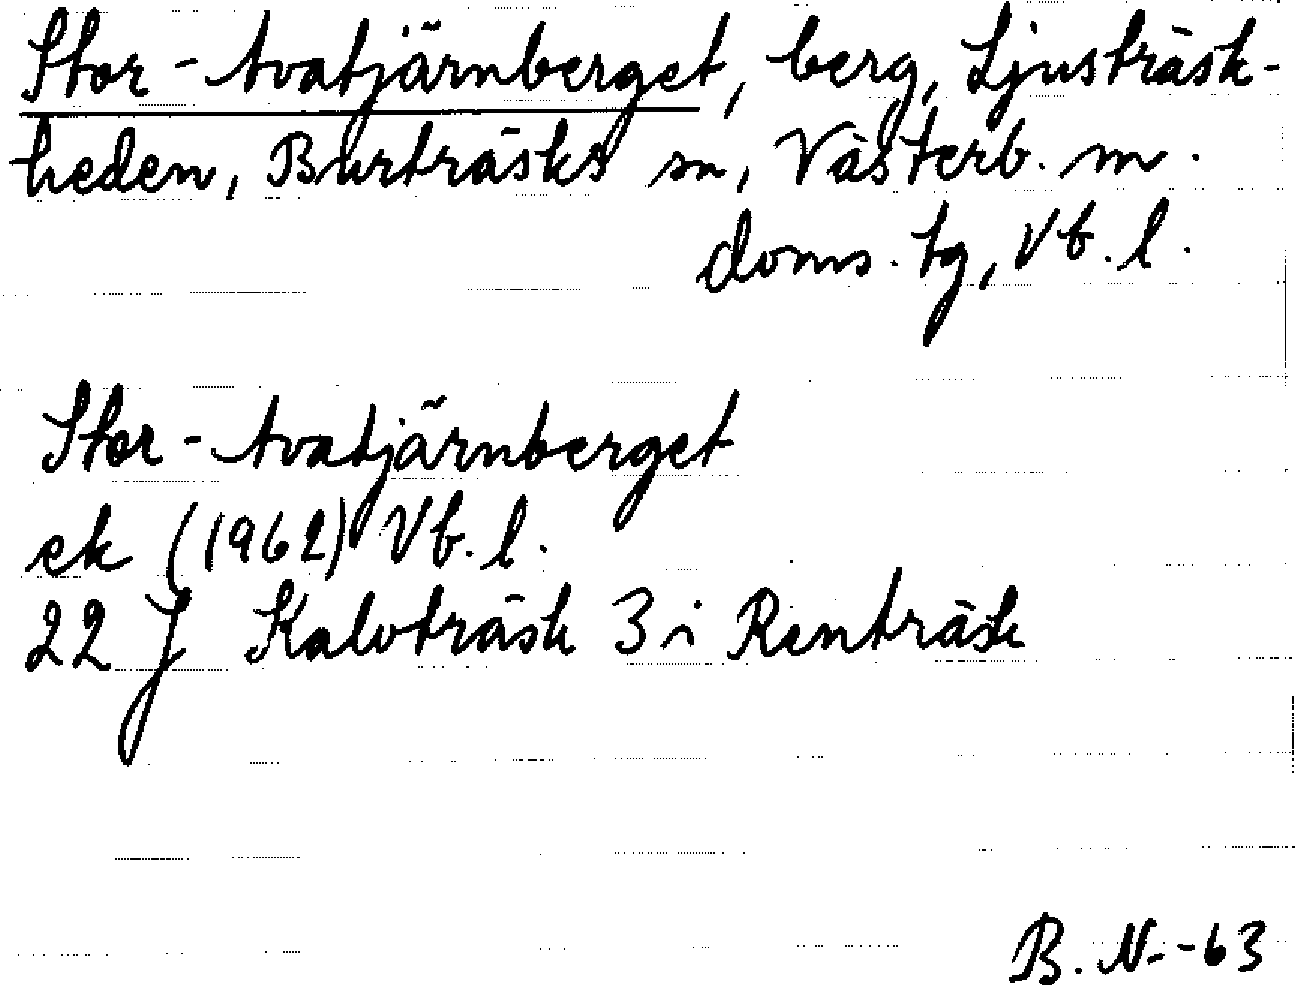 Stor-Avatjärnberget, berg, Ljusträsk-
heden, Burträsks sn, Västerb. m.
doms. tg, Vb. l.
Stor-Avatjärnberget
ek (1962) Vb. l.
22 J Kalvträsk 3 i Renträsk
B. N. -63